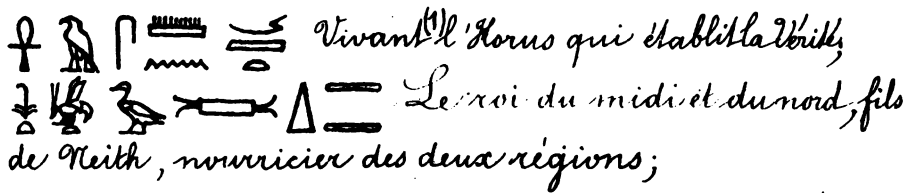 Vivant(1) l'Horus qui établit la Vérité;
Le roi du midi et du nord, fils
de Neith, nourricier des deux régions;